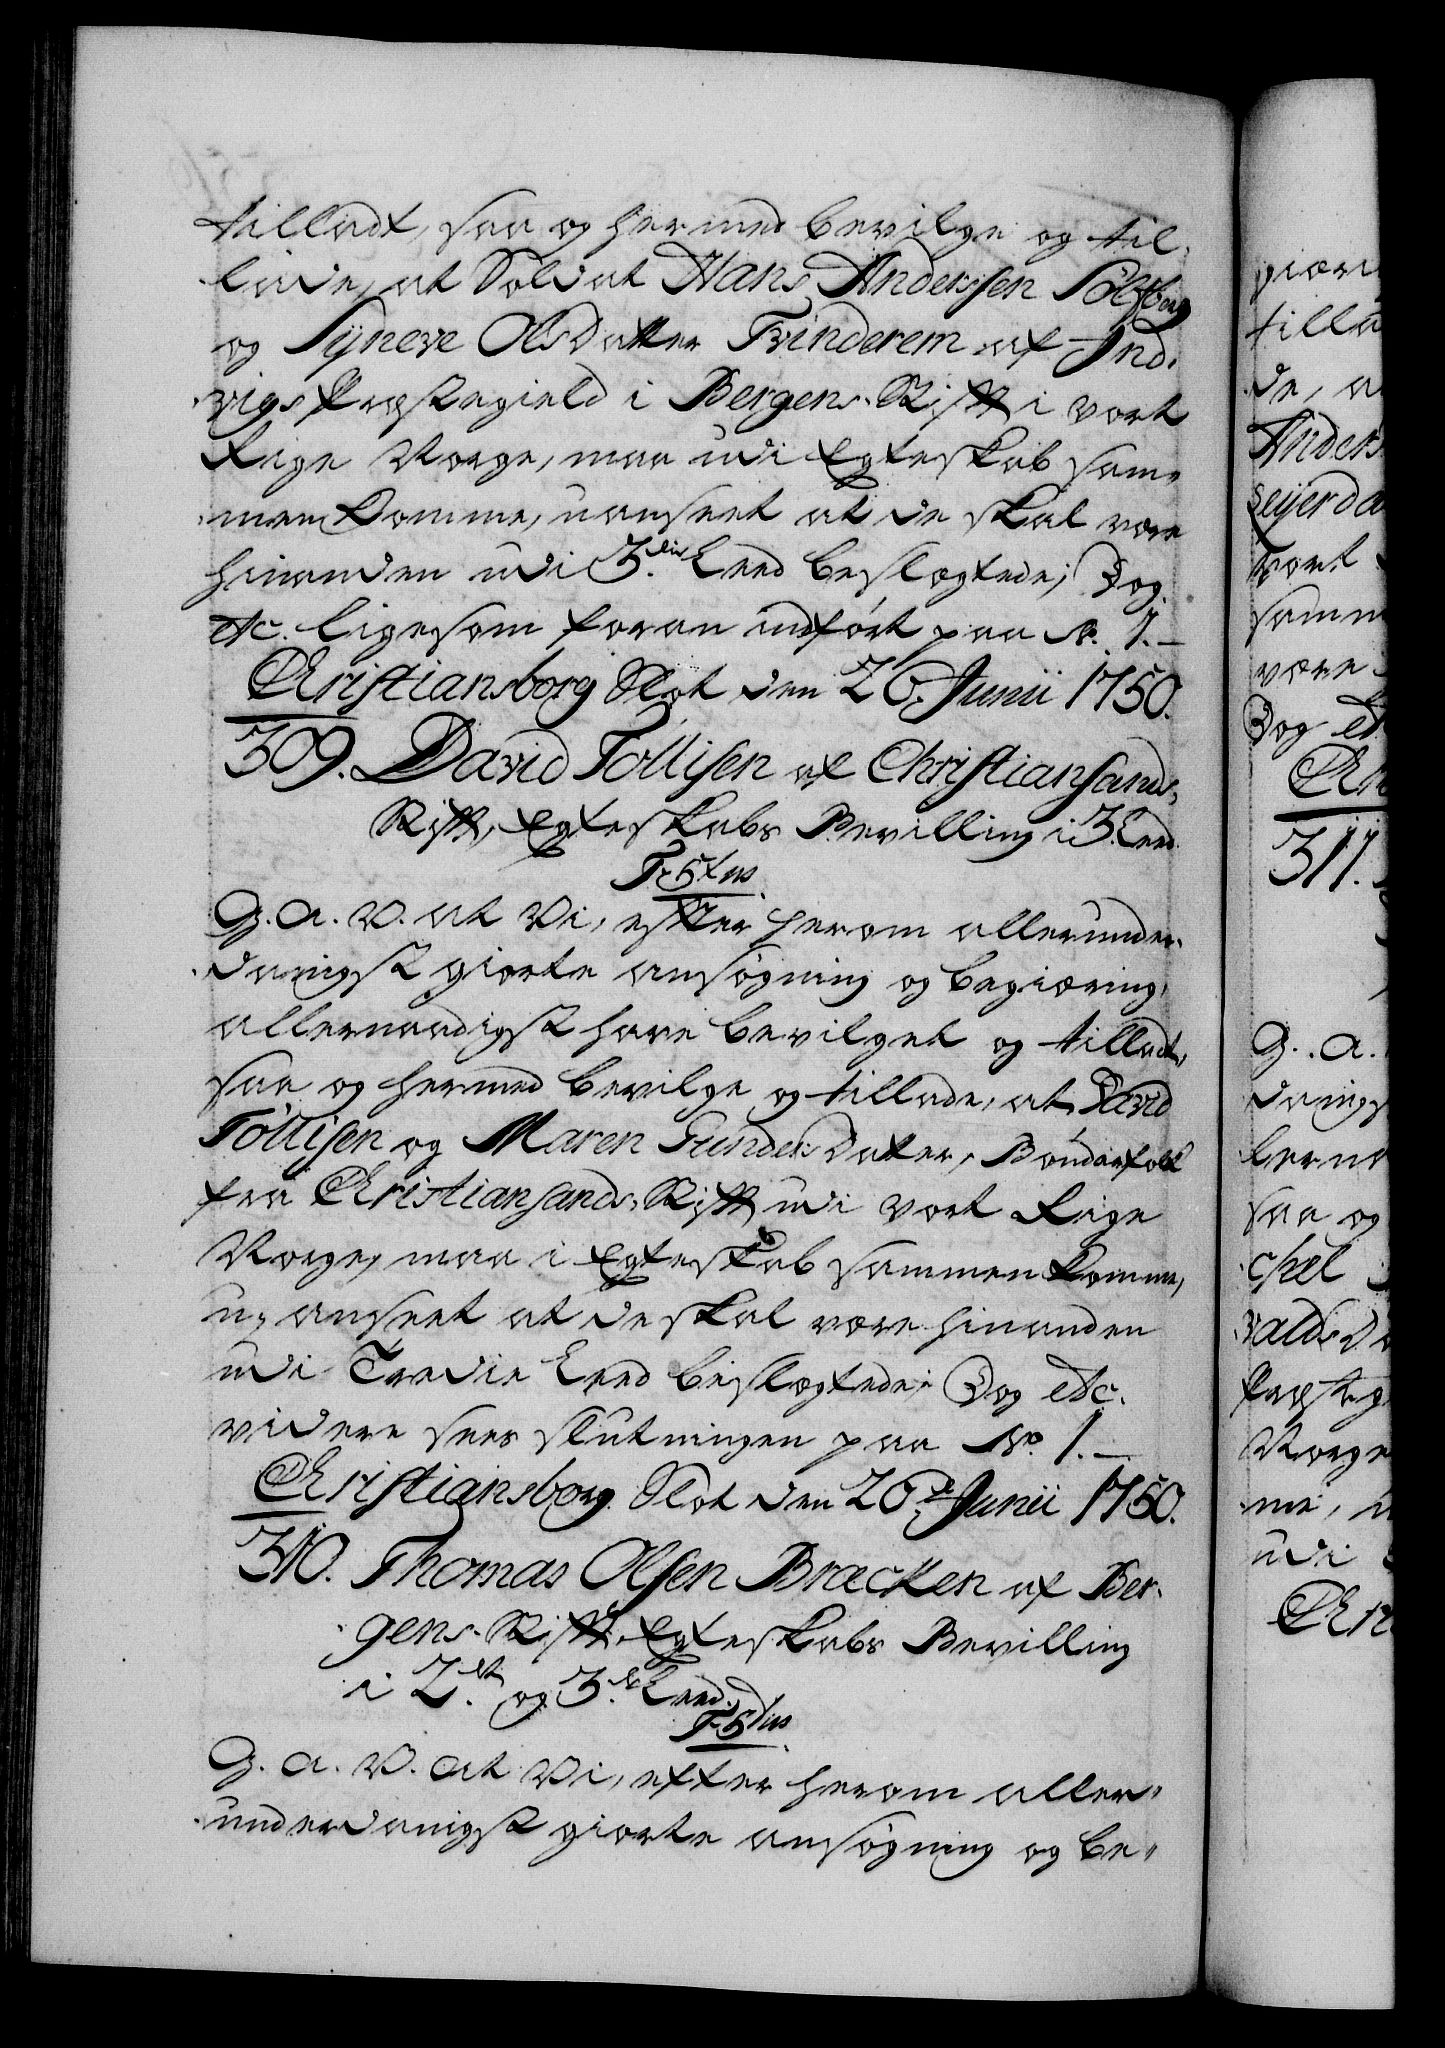 tilladt, saa og hermed bevilge og til-
lade, at Soldat Hans Anderssen Sølfberg
og Syneve Olsdatter Tvinderem af Ind-
vigs Præstegield i Bergens Stift i vort
Rige Norge, maa udi Egteskab sam-
men komme, uanseet at de skal være
hinanden udi 3die Leed beslægtede; Dog
etc. ligesom foran indført paa No. 1. –
Christiansborg Slot den 26. Junii 1750.
309. David Tollisen af Christiansands
Stift, Egteskabs Bevilling i 3. Leed.
F 5tus
G. A. V. at Vi, efter herom allerunder-
danigst giorte ansøgning og begiæring,
allernaadigst have bevilget og tilladt,
saa og hermed bevilge og tillade, at David
Tollisen og Maren Gunders Dater, Bønderfolk
fra Christiansands Stift udi vort Rige
Norge, maa i Egteskab sammen komme,
u-anseet at de skal være hinanden
udi Tredie Leed beslægtede; Dog etc.
videre sees slutningen paa No. 1. –
Christiansborg Slot den 26de Junii 1750.
310. Thomas Olsen Bræcken af Ber-
gens Stift Egteskabs Bevilling
i 2det og 3die Leed.
F 5tus
G. A. V. at Vi, efter herom aller-
underdanigst giorte ansøgning og be-
giæri
tilla
de, a
Anders
Seyerda
vort
samm
være
Dog et
Chr
311.
G. A.
danigs
lerna
saa og
chel
valds D
Præsteg
Norge
me, u
udi
Chr